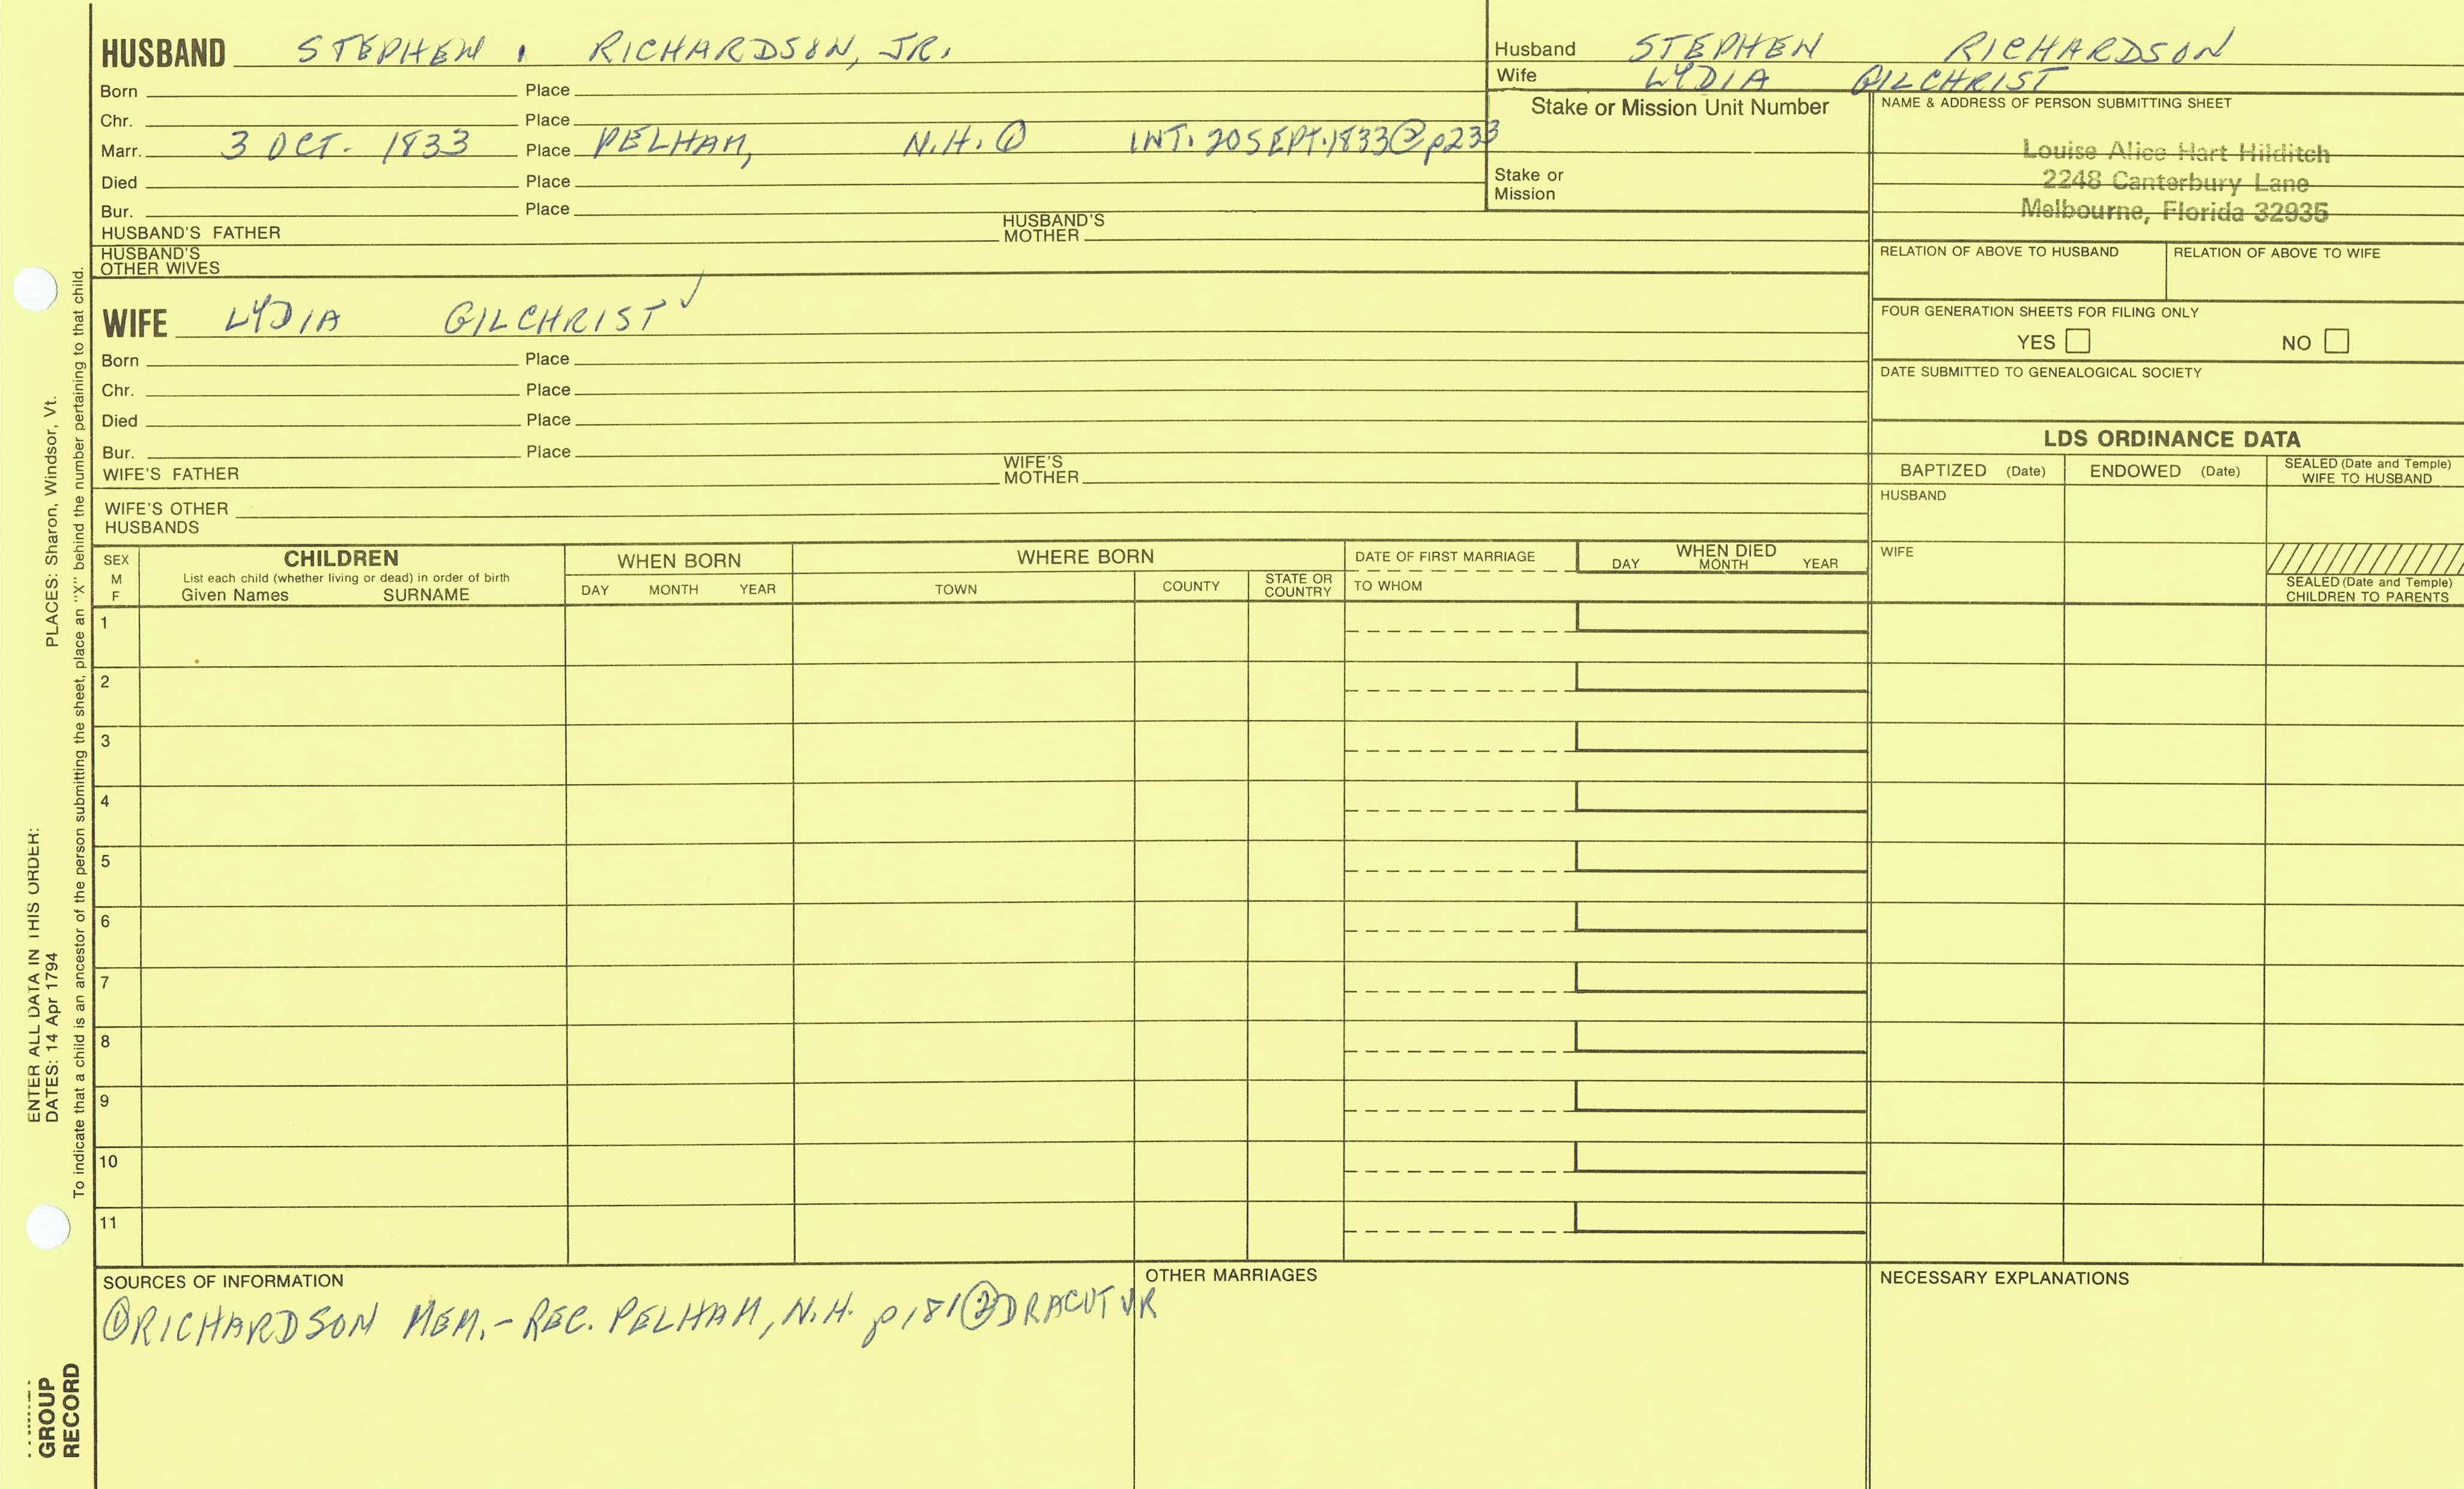 HUSBAND STEPHEN RICHARDSON, JR.
Born Place
Chr. Place
Marr. 3 OCT. 1833 Place PELHAM, N.H. ① INT. 20 SEPT. 1833 ② p233
Died Place
Bur. Place
HUSBAND'S FATHER HUSBAND'S MOTHER
HUSBAND'S OTHER WIVES
Husband STEPHEN RICHARDSON
Wife LYDIA GILCHRIST
Stake or Mission Unit Number
Stake or
Mission
NAME & ADDRESS OF PERSON SUBMITTING SHEET
Louise Alice Hart Hilditch
2248 Canterbury Lane
Melbourne, Florida 32935
RELATION OF ABOVE TO HUSBAND RELATION OF ABOVE TO WIFE
FOUR GENERATION SHEETS FOR FILING ONLY
YES NO
DATE SUBMITTED TO GENEALOGICAL SOCIETY
WIFE LYDIA GILCHRIST ✓
Born Place
Chr. Place
Died Place
Bur. Place
WIFE'S FATHER WIFE'S MOTHER
WIFE'S OTHER
HUSBANDS
LDS ORDINANCE DATA
BAPTIZED (Date) ENDOWED (Date) SEALED (Date and Temple) WIFE TO HUSBAND
HUSBAND
WIFE
SEALED (Date and Temple)
CHILDREN TO PARENTS
SEX M F
CHILDREN
List each child (whether living or dead) in order of birth
Given Names SURNAME
WHEN BORN
DAY MONTH YEAR
WHERE BORN
TOWN COUNTY STATE OR COUNTRY
DATE OF FIRST MARRIAGE
TO WHOM
WHEN DIED
DAY MONTH YEAR
1
2
3
4
5
6
7
8
9
10
11
SOURCES OF INFORMATION
① RICHARDSON MEM. - REC. PELHAM, N.H. p181 ② DRACUT VR
OTHER MARRIAGES
NECESSARY EXPLANATIONS
ENTER ALL DATA IN THIS ORDER:
DATES: 14 Apr 1794 PLACES: Sharon, Windsor, Vt.
To indicate that a child is an ancestor of the person submitting the sheet, place an "X" behind the number pertaining to that child.
GROUP
RECORD